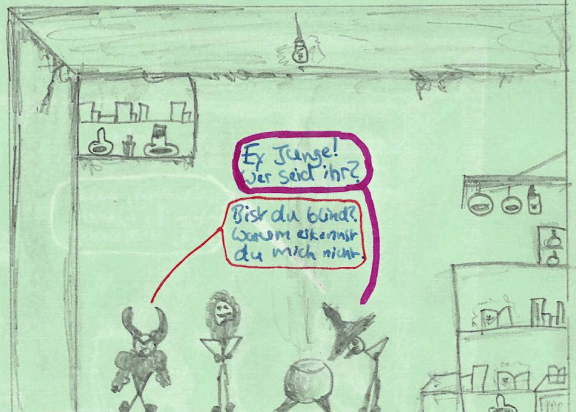 Ey Junge!
Wer seid ihr?
Bist du blind?
Warum erkennst
du mich nicht.